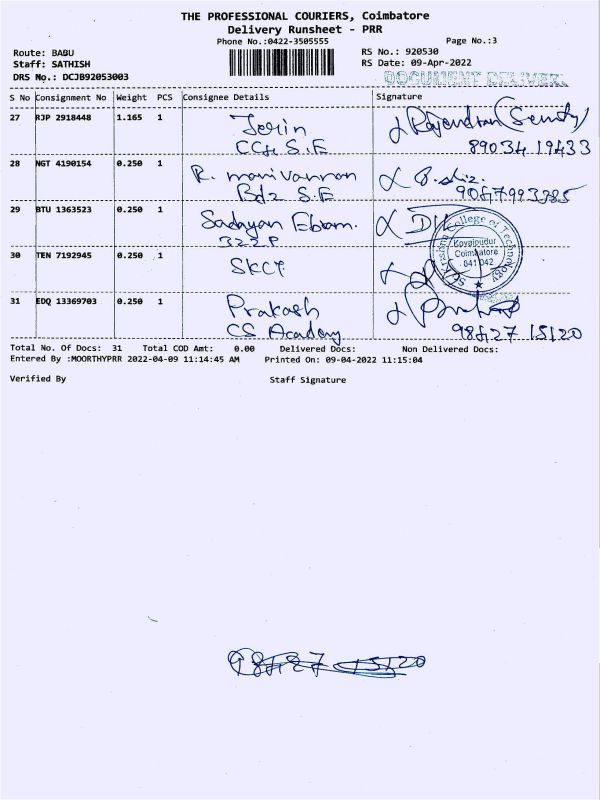 THE PROFESSIONAL COURIERS, Coimbatore
Delivery Runsheet - PRR
Phone No.:0422-3505555
Page No.:3
Route: BABU
RS No.: 920530
Staff: SATHISH
RS Date: 09-Apr-2022
DRS No.: DCJB92053003
DOCUMENT DELIVERY
S No Consignment No Weight PCS Consignee Details Signature
27 RJP 2918448 1.165 1 Jerin Rajendran (Security)
CCH S.E 89034 19433
28 NGT 4190154 0.250 1 R. manivannan
Bdz S.E
29 BTU 1363523 0.250 1 Sadayan Ebram.
322P
30 TEN 7192945 0.250 1 SKCT
Sri Krishna College of Technology
Kovaipudur
Coimbatore
641 042
31 EDQ 13369703 0.250 1 Prakash
CS Academy 98427 15120
Total No. Of Docs: 31 Total COD Amt: 0.00 Delivered Docs: Non Delivered Docs:
Entered By :MOORTHYPRR 2022-04-09 11:14:45 AM Printed On: 09-04-2022 11:15:04
Verified By Staff Signature
98427 15120